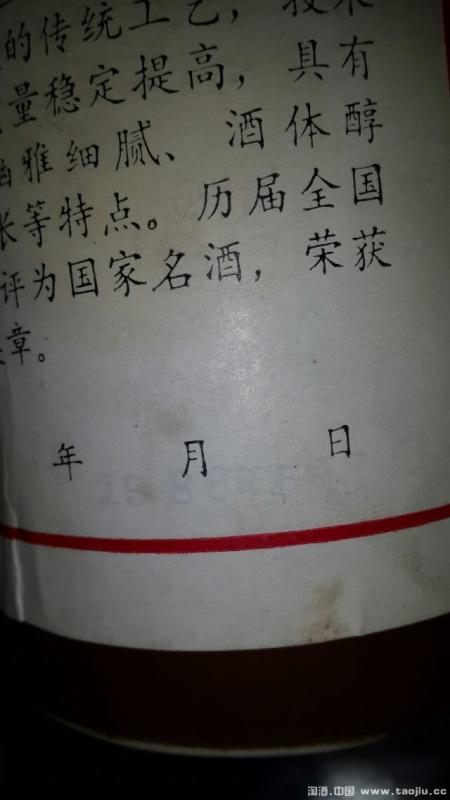 的传统工艺，技术
量稳定提高，具有
幽雅细腻、酒体醇
长等特点。历届全国
评为国家名酒，荣获
章。
年 月 日
淘酒.中国 www.taojiu.cc